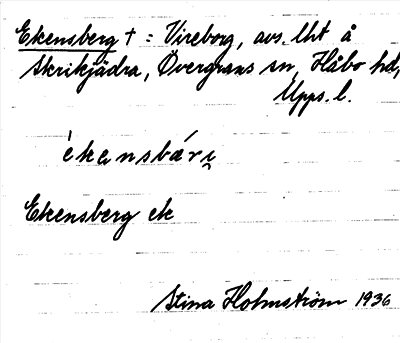 Ekensberg † = Vireborg, avs. lht å
Skrikjädra, Övergrans sn, Håbo hd,
Upps. l.
èkansbári̯
Ekensberg ek
Stina Holmström 1936